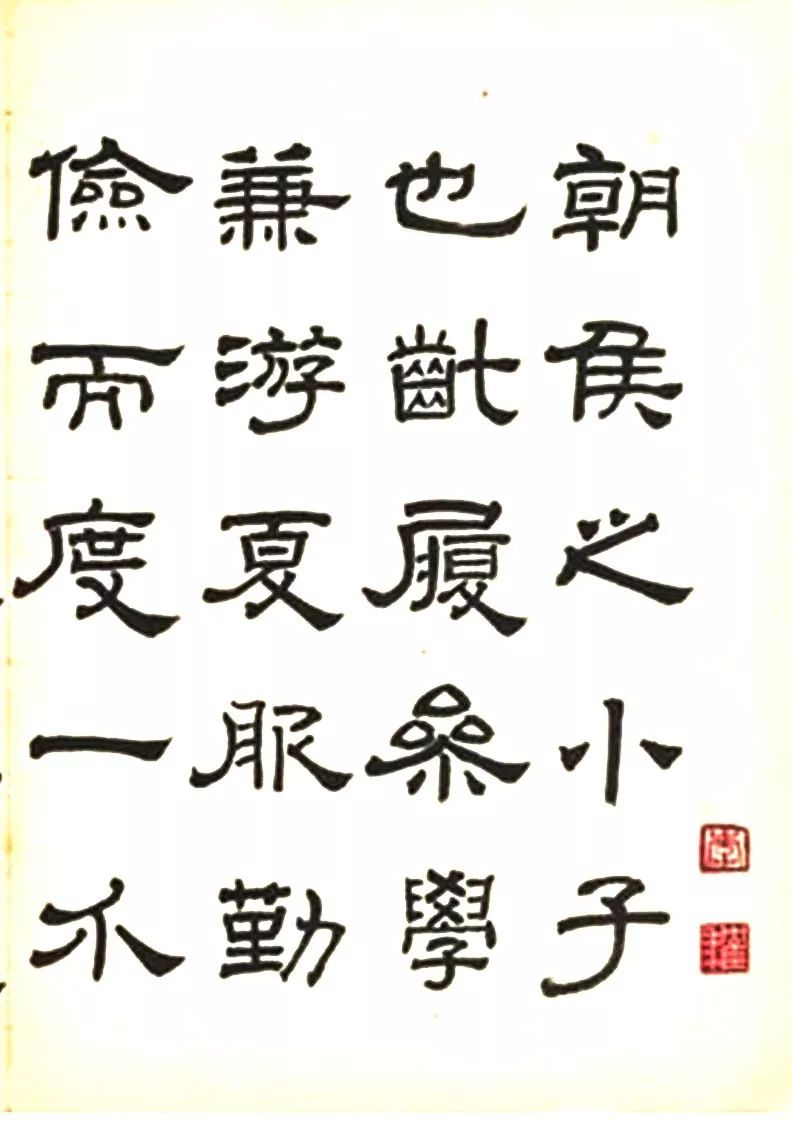 朝侯之小子
也齔履參學
兼游夏服勤
儉而度一介